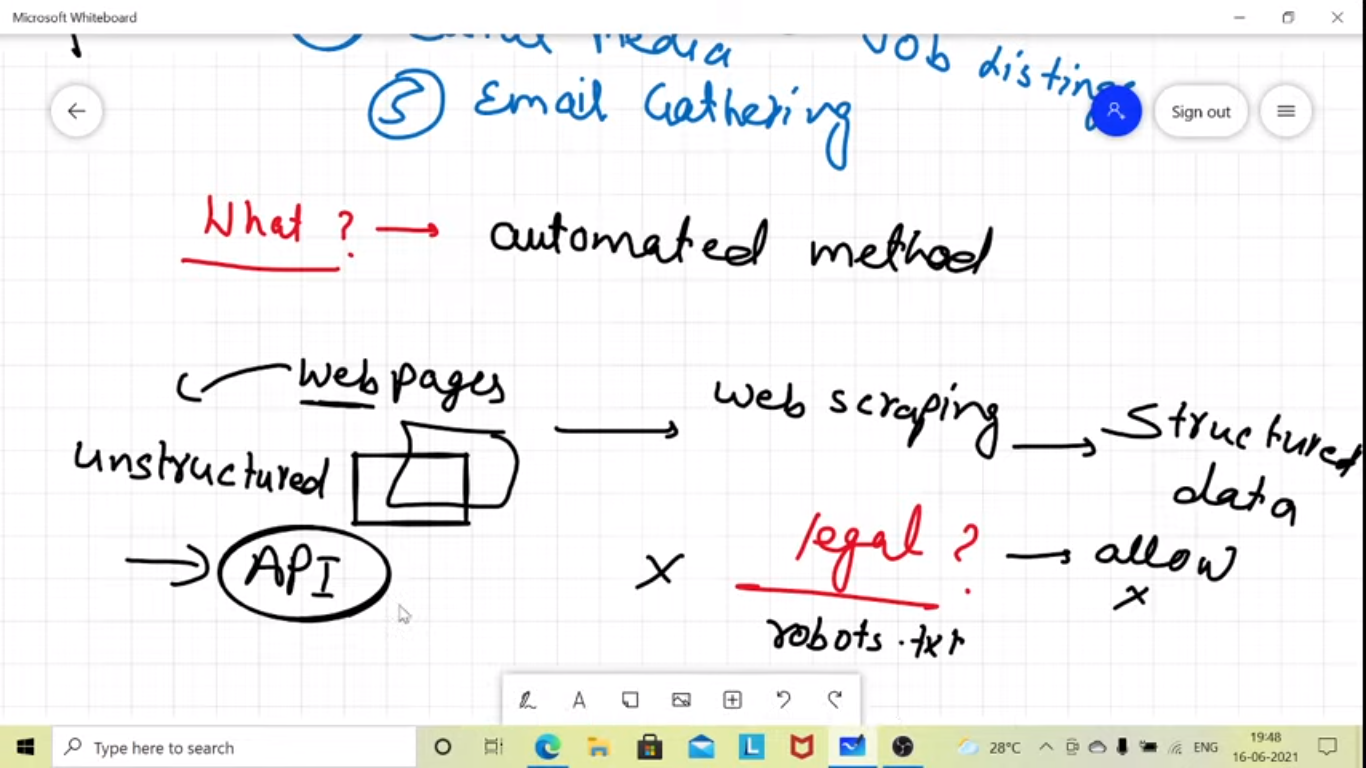 Microsoft Whiteboard
Media - Job Listings
③ Email Gathering
Sign out
What ? → automated method
Web pages → web scraping → Structured data
unstructured
→ API
X legal ? → allow
X
robots.txt
A
Type here to search
L
28°C
ENG
19:48
16-06-2021